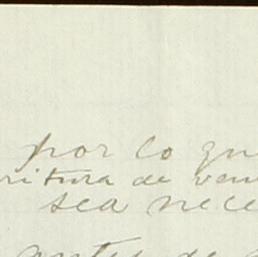 por lo qu
ritura de ven
sea nece
antes de